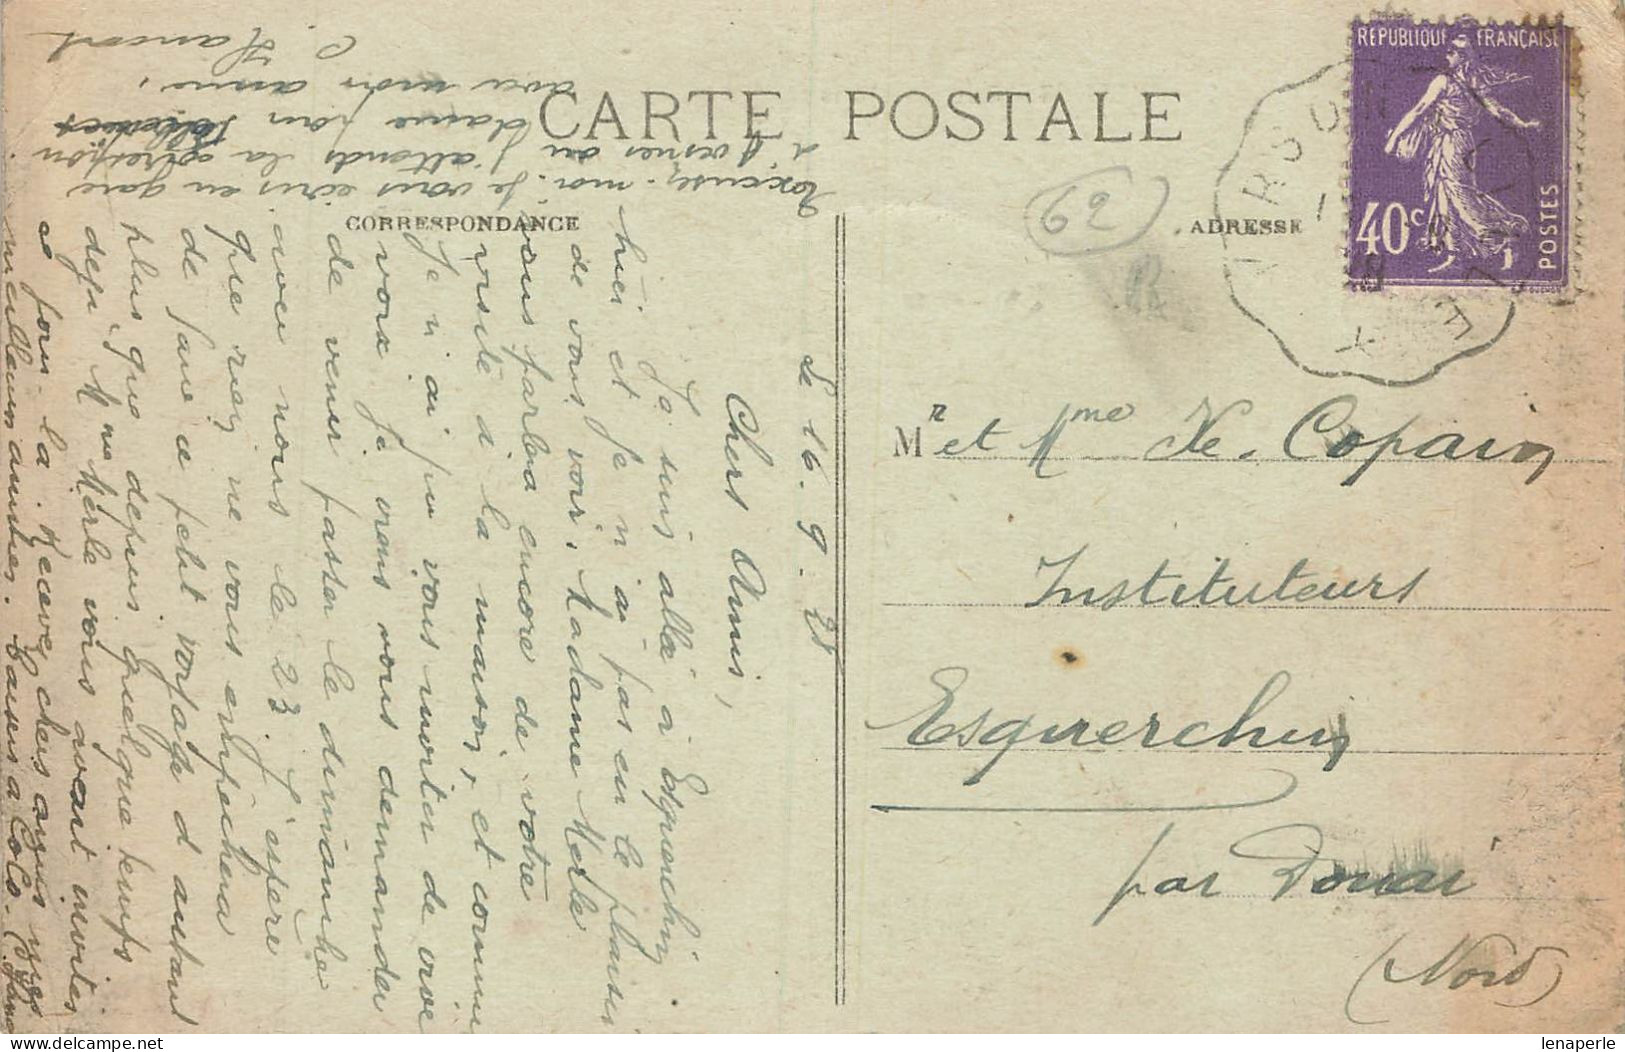 CARTE POSTALE
CORRESPONDANCE
ADRESSE
REPUBLIQUE FRANÇAISE
40c
POSTES
62
Le 16. 9. 28
Chers Amis,
Je suis allé à Esquerchin
hier et je n'ai pas eu le plaisir
de vous voir. Madame Merle
vous parlera encore de votre
visite à la maison, et comme
Je n'ai pu vous inviter de vive
voix je viens vous demander
de venir passer le dimanche
avec nous le 23. J'espère
que rien ne vous empêchera
de faire ce petit voyage d'autant
plus que depuis quelque temps
déjà Mme Merle vous avait invités
pour là. Recevez chers amis mes
meilleures amitiés. Baisers à Colo.
Excusez-moi. Je vous écris en gare
j'attends la
pour
avec mon amie.
M
r et Mme Copain
Instituteurs
Esquerchin
par Douai
(Nord)
lenaperle